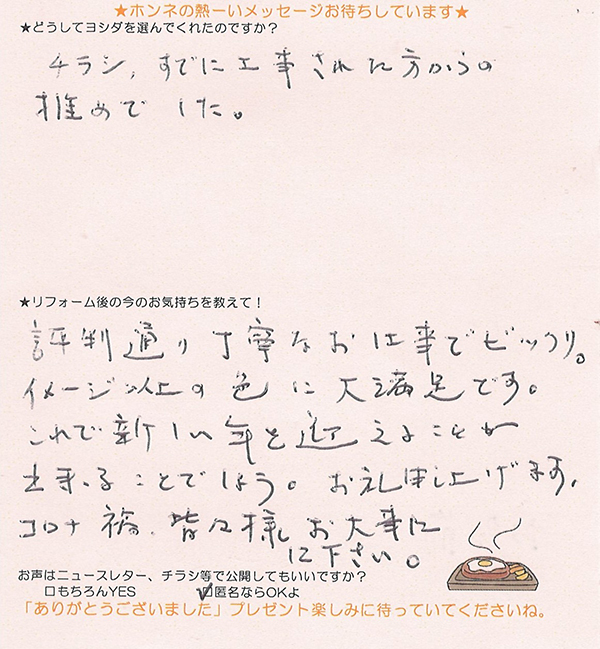 ★ホンネの熱ーいメッセージお待ちしています★
★どうしてヨシダを選んでくれたのですか?
チラシ、すでに工事された方からの
推めでした。
★リフォーム後の今のお気持ちを教えて!
評判通り丁寧なお仕事でビックリ。
イメージ以上の色に大満足です。
これで新しい年を迎えることが
出来ることでしょう。お礼申し上げます。
コロナ禍、皆々様もお大事に
に下さい。
お声はニュースレター、チラシ等で公開してもいいですか?
□もちろんYES ☑匿名ならOKよ
「ありがとうございました」プレゼント楽しみに待っていてくださいね。